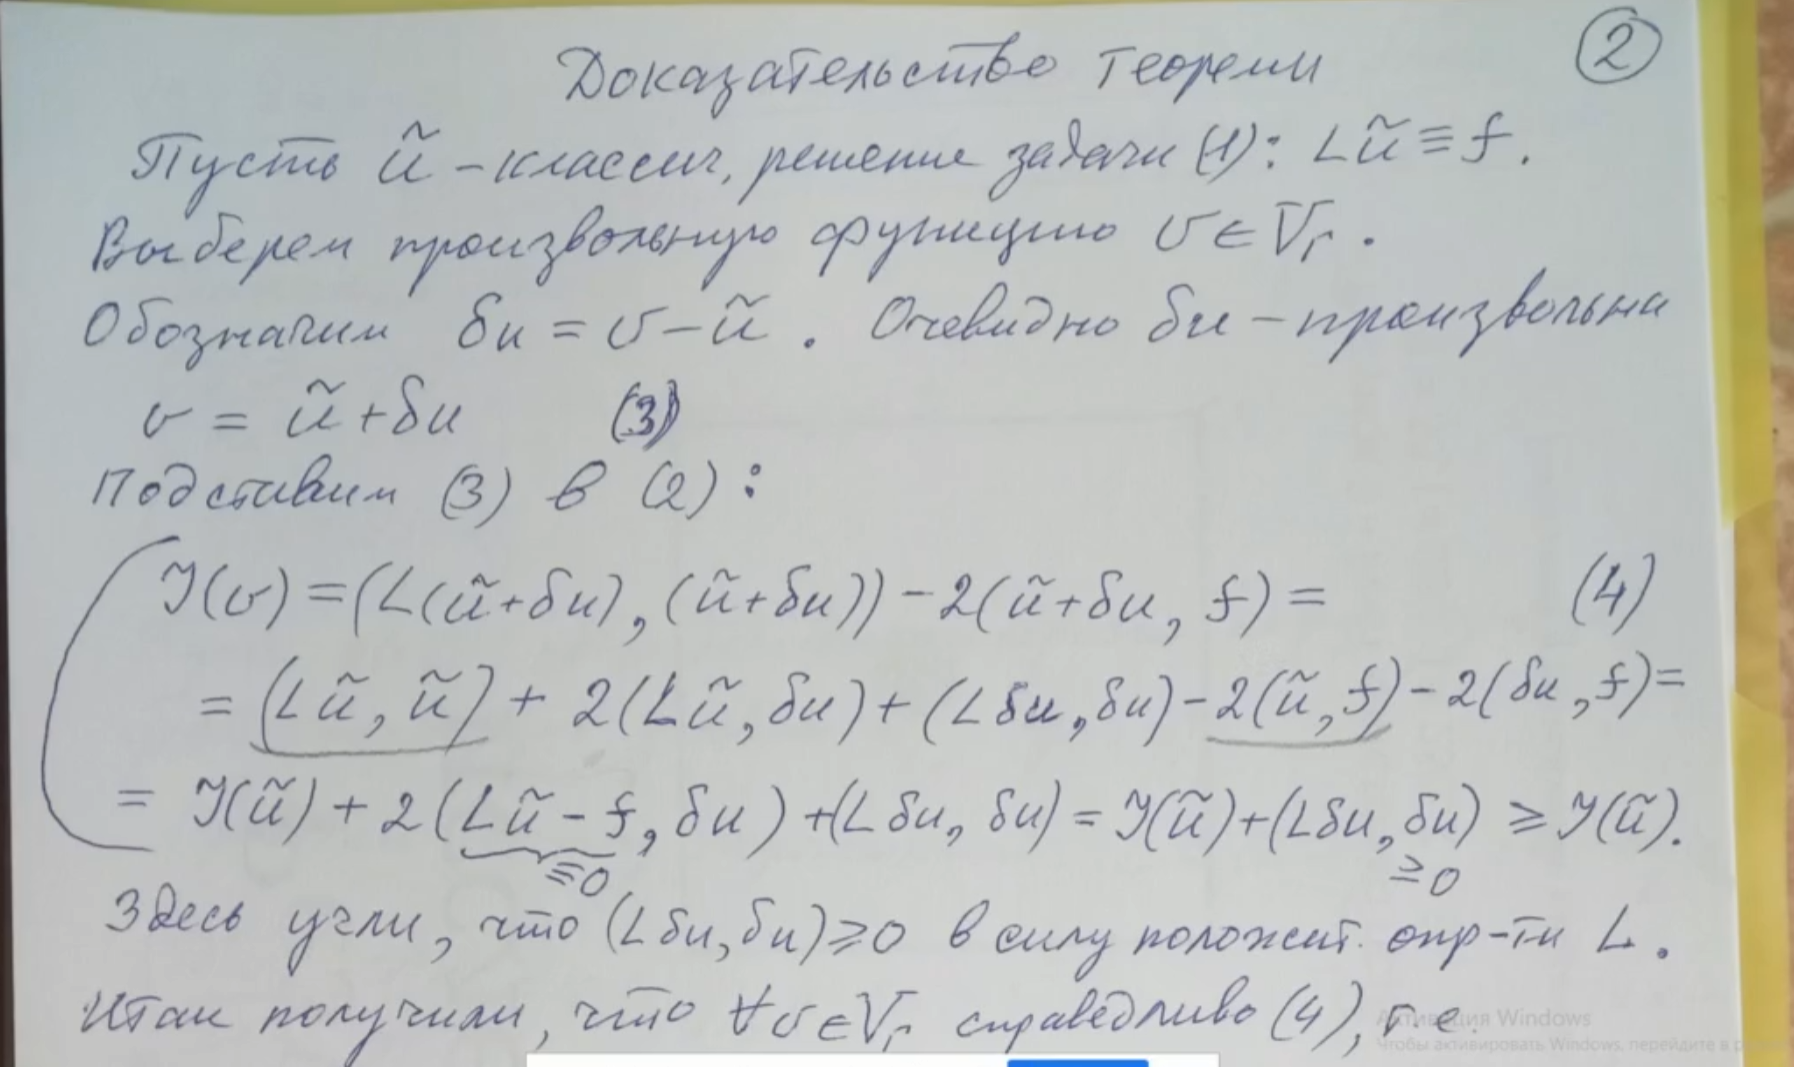 Доказательство теореми
2
Пусть ũ - классич. решение задачи (1): Lũ ≡ f.
Выберем произвольную функцию v ∈ V_Γ.
Обозначим δu = v - ũ. Очевидно δu - произвольна
v = ũ + δu (3)
Подставим (3) в (2):
J(v) = (L(ũ+δu), (ũ+δu)) - 2(ũ+δu, f) = (4)
= (Lũ, ũ) + 2(Lũ, δu) + (Lδu, δu) - 2(ũ, f) - 2(δu, f) =
= J(ũ) + 2(Lũ - f, δu) + (Lδu, δu) = J(ũ) + (Lδu, δu) ≥ J(ũ).
≡0 ≥0
Здесь учли, что (Lδu, δu) ≥ 0 в силу положит. опр-ти L.
Итак получили, что ∀v ∈ V_Γ справедливо (4), т.е.
Активация Windows
Чтобы активировать Windows, перейдите в